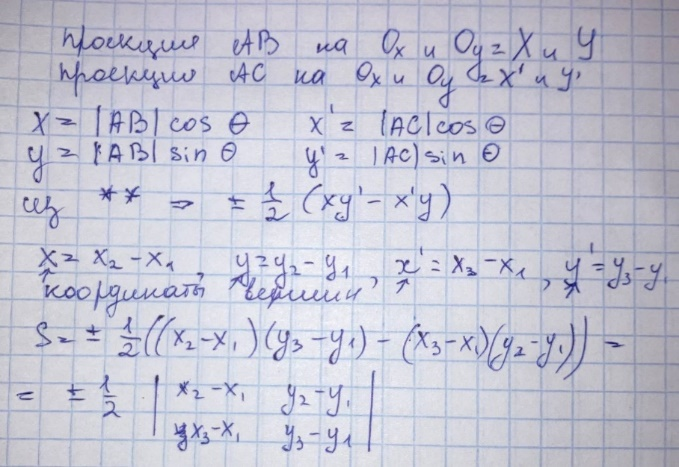 проекция AB на Ox и Oy = X и Y
проекция AC на Ox и Oy = x' и y'
x = |AB| cos θ x' = |AC| cos θ
y = |AB| sin θ y' = |AC| sin θ
из ** ⇒ ± 1/2 (xy' - x'y)
x = x₂ - x₁, y = y₂ - y₁, x' = x₃ - x₁, y' = y₃ - y₁
координаты вершин
S = ± 1/2 ((x₂ - x₁)(y₃ - y₁) - (x₃ - x₁)(y₂ - y₁)) =
= ± 1/2 | x₂ - x₁ y₂ - y₁ |
| x₃ - x₁ y₃ - y₁ |